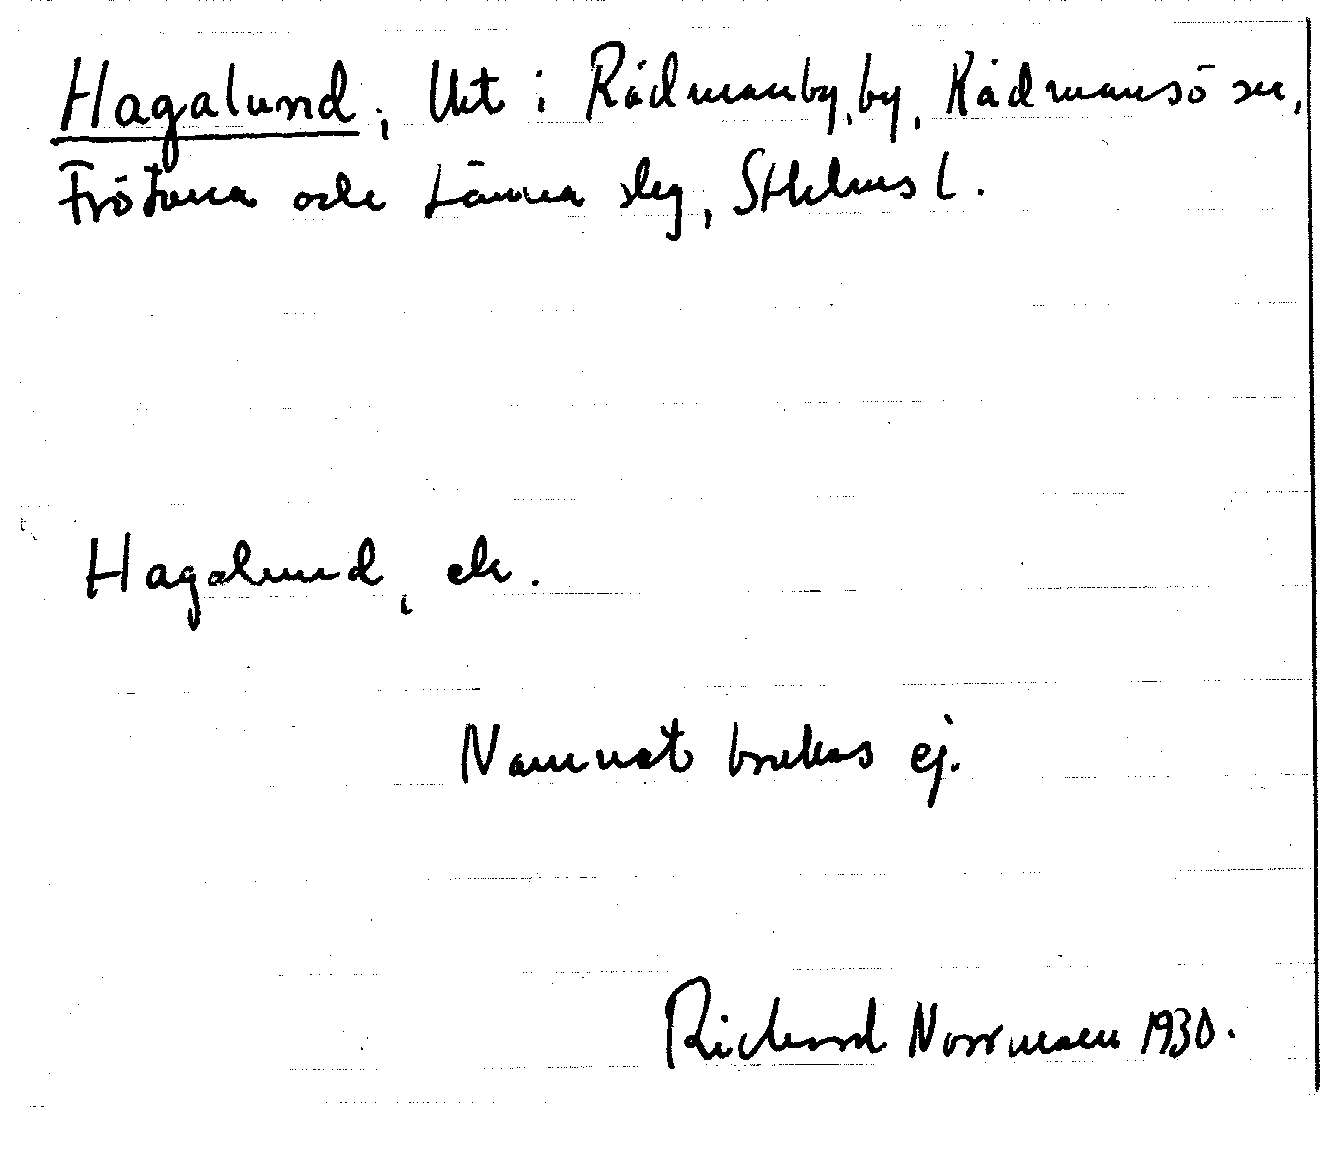 Hagalund, Utt i Rådmanby, by, Rådmansö sn,
Frötuna och Länna slg, Sthlms l.
Hagalund, ek.
Namnet brukas ej.
Richard Norrman 1930.